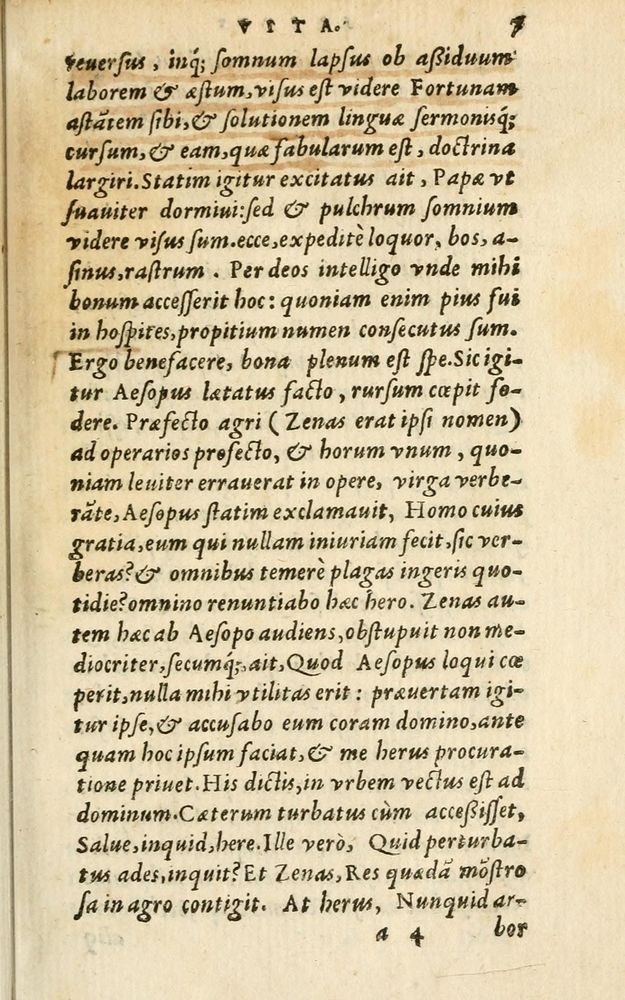 VITA. 7
reuersus, inq́; somnum lapsus ob aßiduum
laborem & æstum, visus est videre Fortunam
astãtem sibi, & solutionem linguæ sermonisq́;
cursum, & eam, quæ fabularum est, doctrina
largiri. Statim igitur excitatus ait, Papæ vt
suauiter dormiui: sed & pulchrum somnium
videre visus sum. ecce, expeditè loquor, bos, a-
sinus, rastrum. Per deos intelligo vnde mihi
bonum accesserit hoc: quoniam enim pius fui
in hospites, propitium numen consecutus sum.
Ergo benefacere, bona plenum est spe. Sic igi-
tur Aesopus lætatus facto, rursum cœpit fo-
dere. Præfecto agri (Zenas erat ipsi nomen)
ad operarios profecto, & horum vnum, quo-
niam leuiter errauerat in opere, virga verbe-
rãte, Aesopus statim exclamauit, Homo cuius
gratia, eum qui nullam iniuriam fecit, sic ver-
beras? & omnibus temerè plagas ingeris quo-
tidie? omnino renuntiabo hæc hero. Zenas au-
tem hæc ab Aesopo audiens, obstupuit non me-
diocriter, secumq́;, ait, Quod Aesopus loqui cœ
perit, nulla mihi vtilitas erit: præuertam igi-
tur ipse, & accusabo eum coram domino, ante
quam hoc ipsum faciat, & me herus procura-
tione priuet. His dictis, in vrbem vectus est ad
dominum. Cæterum turbatus cùm acceßisset,
Salue, inquid, here. Ille verò, Quid perturba-
tus ades, inquit? Et Zenas, Res quædã mõstro
sa in agro contigit. At herus, Nunquid ar-
a 4 bor